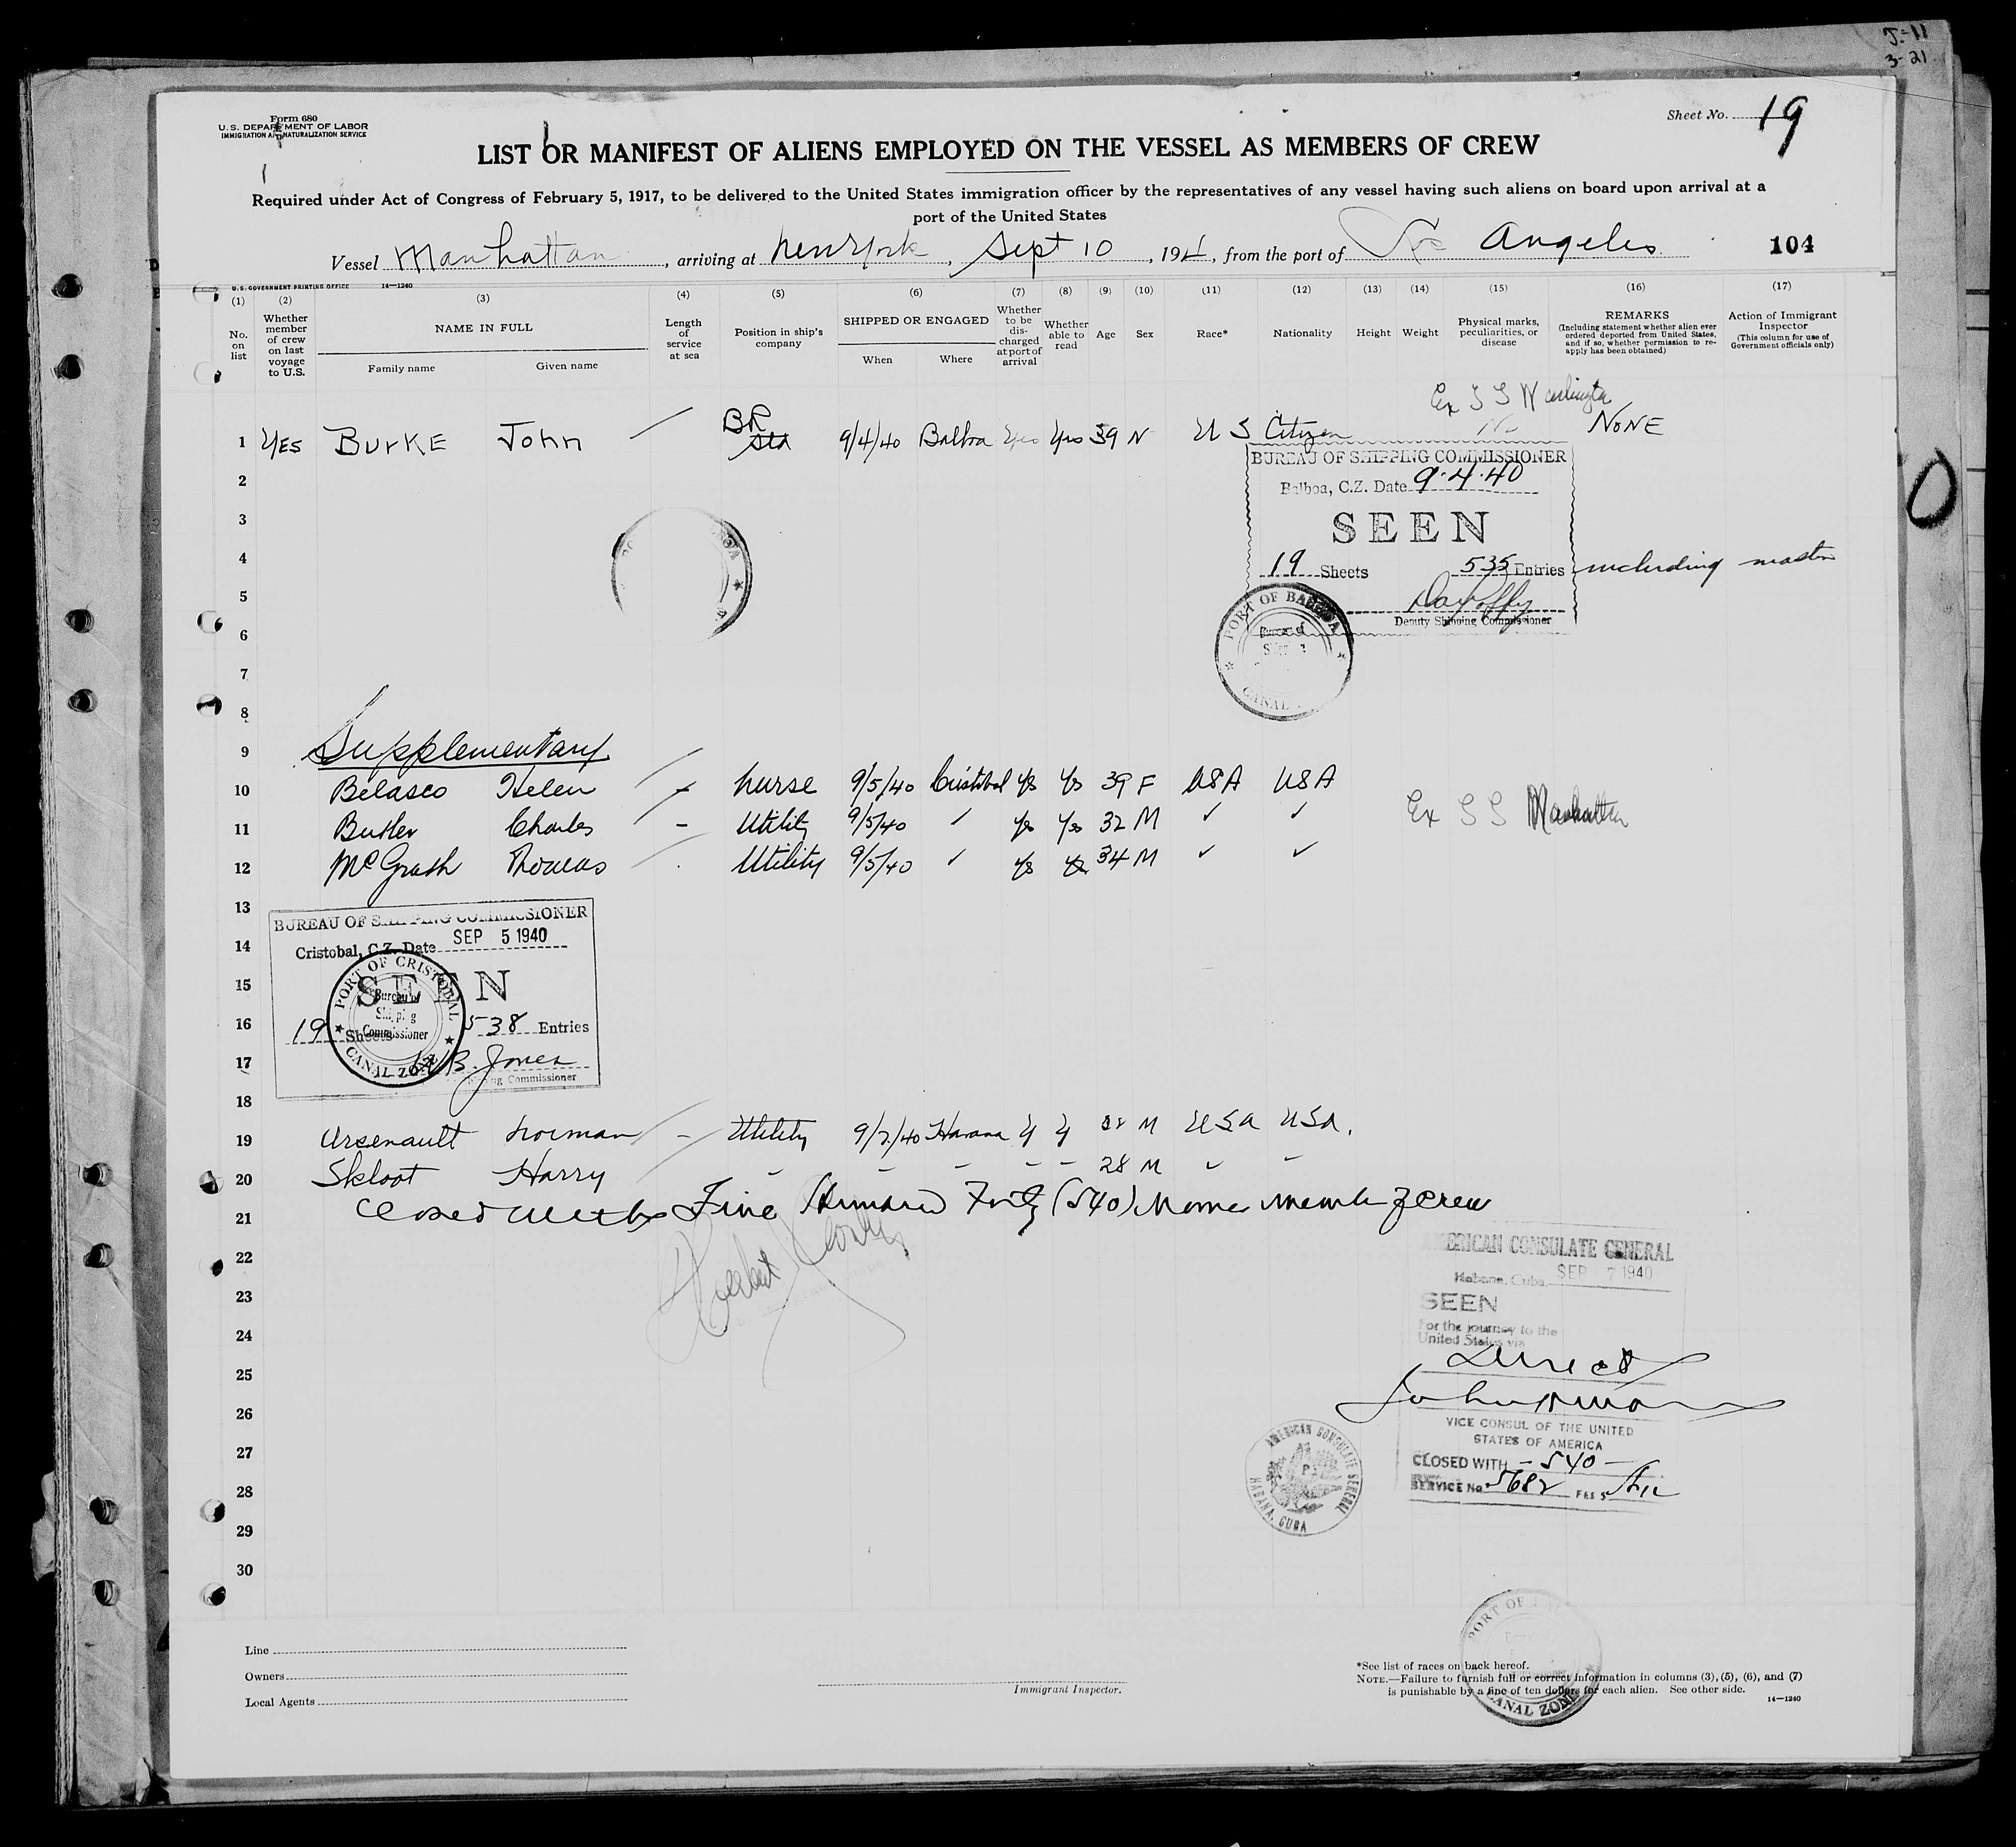 J-11
3-21
Form 680
U.S. DEPARTMENT OF LABOR
IMMIGRATION AND NATURALIZATION SERVICE
Sheet No. 19
LIST OR MANIFEST OF ALIENS EMPLOYED ON THE VESSEL AS MEMBERS OF CREW
Required under Act of Congress of February 5, 1917, to be delivered to the United States immigration officer by the representatives of any vessel having such aliens on board upon arrival at a
port of the United States
Vessel Manhattan, arriving at New York, Sept 10, 194, from the port of Los Angeles 104
U.S. GOVERNMENT PRINTING OFFICE 14—1240
(1) (2) (3) (4) (5) (6) (7) (8) (9) (10) (11) (12) (13) (14) (15) (16) (17)
No. on list
Whether member of crew on last voyage to U.S.
NAME IN FULL
Family name Given name
Length of service at sea
Position in ship's company
SHIPPED OR ENGAGED
When Where
Whether to be discharged at port of arrival
Whether able to read
Age
Sex
Race*
Nationality
Height
Weight
Physical marks, peculiarities, or disease
REMARKS
(Including statement whether alien ever ordered deported from United States, and if so, whether permission to re-apply has been obtained)
Action of Immigrant Inspector
(This column for use of Government officials only)
Ex S S Washington
BR
1 YES BURKE John 9/4/40 Balboa Yes Yes 39 U S Citizen No NONE
2
3
4
5
6
7
8
BUREAU OF SHIPPING COMMISSIONER
Balboa, C.Z. Date 9.4.40
SEEN
19 Sheets 535 Entries including master
Deputy Shipping Commissioner
PORT OF BALBOA
Bureau of
CANAL
9 Supplementary
10 Belasco Helen - nurse 9/5/40 Cristobal Ys Ys 39 F USA USA
11 Butler Charles - Utility 9/5/40 ✓ Ys Yes 32 M ✓ ✓ Ex S S Manhattan
12 McGrath Thomas Utility 9/5/40 ✓ Ys Ys 34 M ✓ ✓
13
14
15
16
17
18
BUREAU OF SHIPPING COMMISSIONER
Cristobal, C.Z. Date SEP 5 1940
SEEN
19 Sheets 538 Entries
B. Jones
Commissioner
PORT OF CRISTOBAL
Bureau of
Shipping
Commissioner
CANAL ZONE
19 Arsenault Norman - Utility 9/7/40 Havana Y Y M USA USA.
20 Skloot Harry - - - - - 28 M ✓ -
21 Closed with Five Hundred Forty (540) crew
22
23
24
25
26
27
28
29
30
AMERICAN CONSULATE GENERAL
Habana, Cuba, SEP 7 1940
SEEN
For the journey to the
United States via
Direct
VICE CONSUL OF THE UNITED
STATES OF AMERICA
CLOSED WITH - 540 -
SERVICE No. 5682 FEE $
AMERICAN CONSULATE GENERAL
HABANA, CUBA
Line
Owners
Local Agents
Immigrant Inspector.
*See list of races on back hereof.
NOTE.—Failure to furnish full or correct information in columns (3), (5), (6), and (7)
is punishable by a fine of ten dollars for each alien. See other side.
14—1240
PORT OF
CANAL ZONE